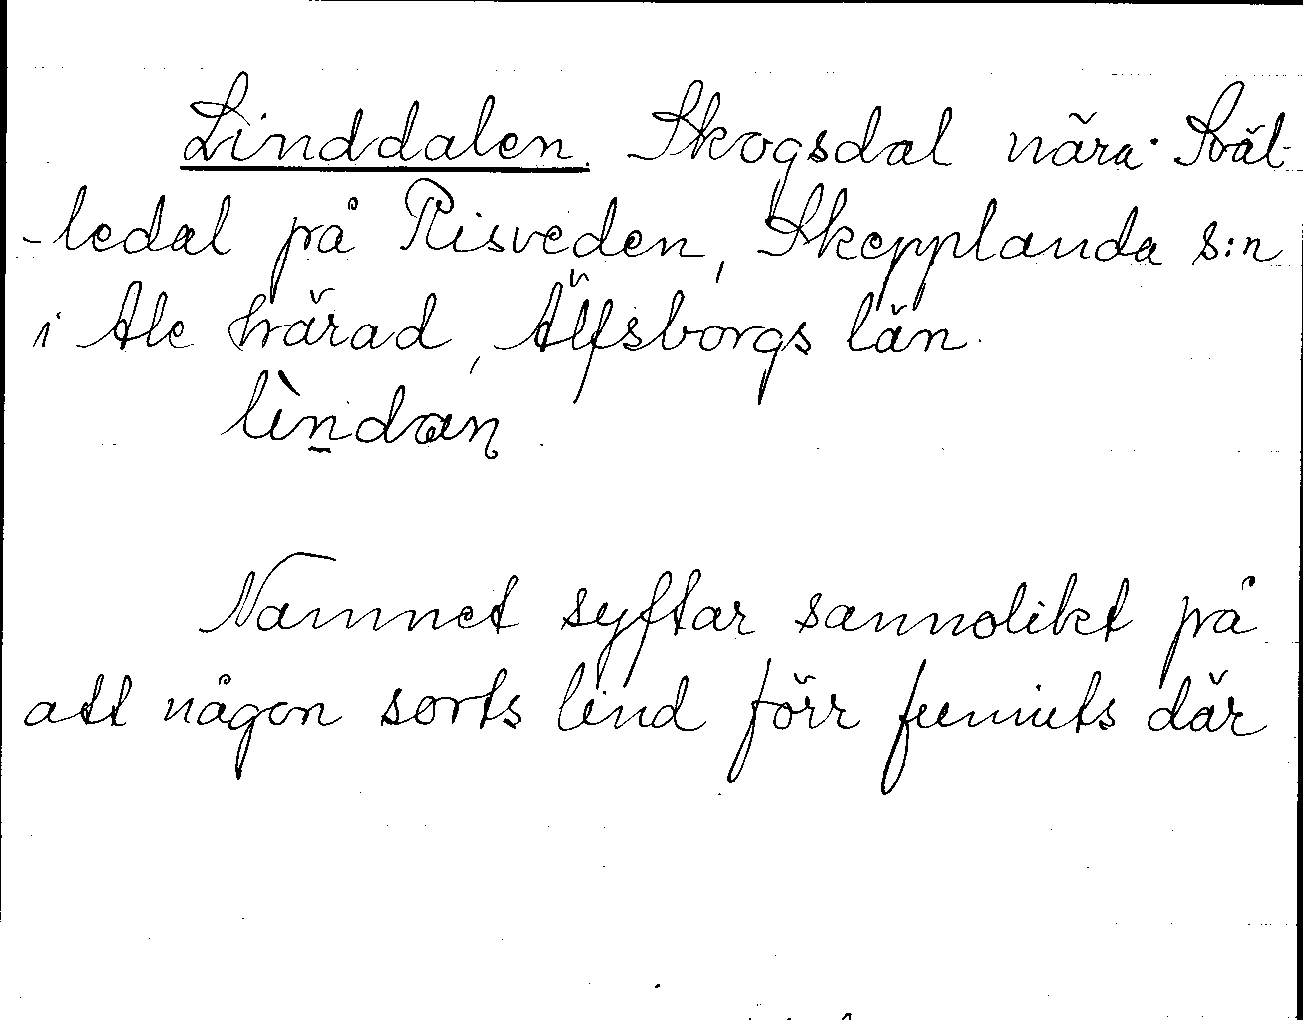 Linddalen. Skogsdal nära Sväl-
-ledal på Risveden, Skepplanda s:n
i Ale härad, Älfsborgs län.
lìndan
Namnet syftar sannolikt på
att någon sorts lind förr funnits där